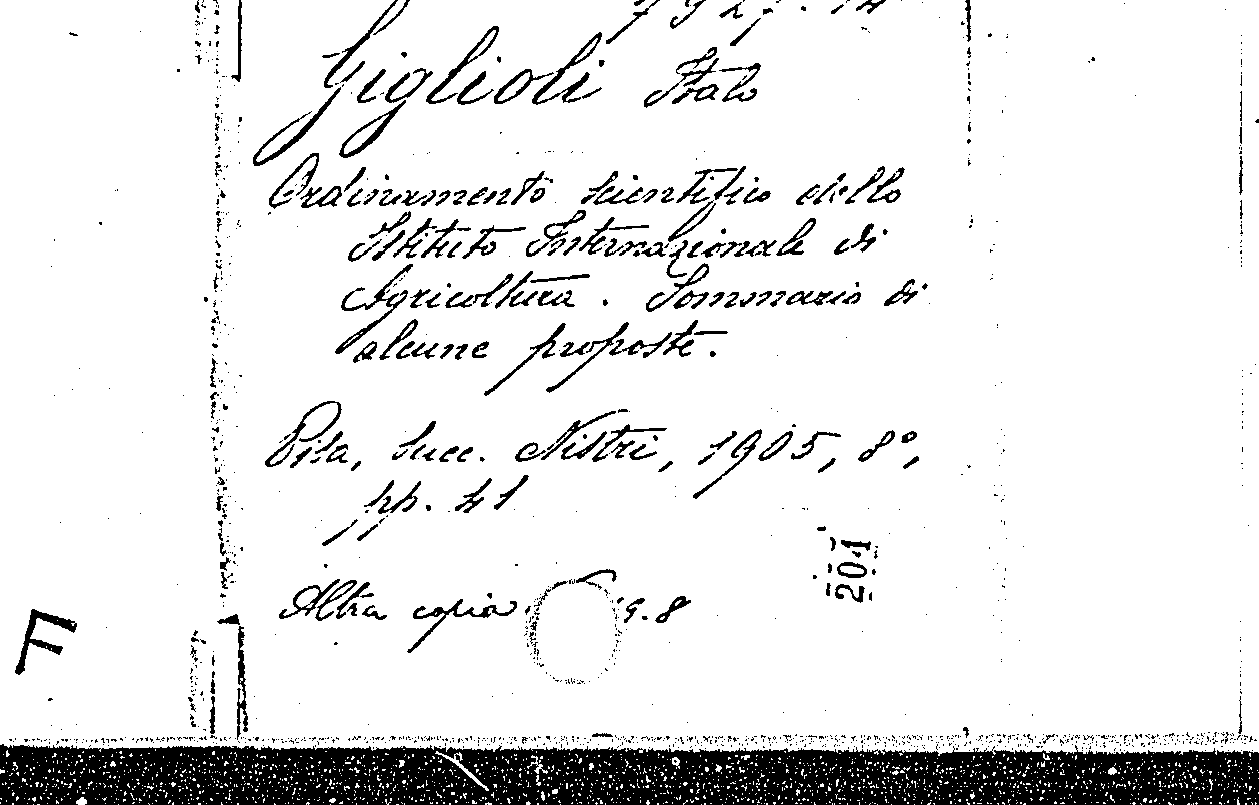 Giglioli Italo
Ordinamento scientifico dello
Istituto Internazionale di
Agricoltura. Sommario di
alcune proposte.
Pisa, Succ. Nistri, 1905, 8°,
pp. 41
Altra copia 9.8
204
F